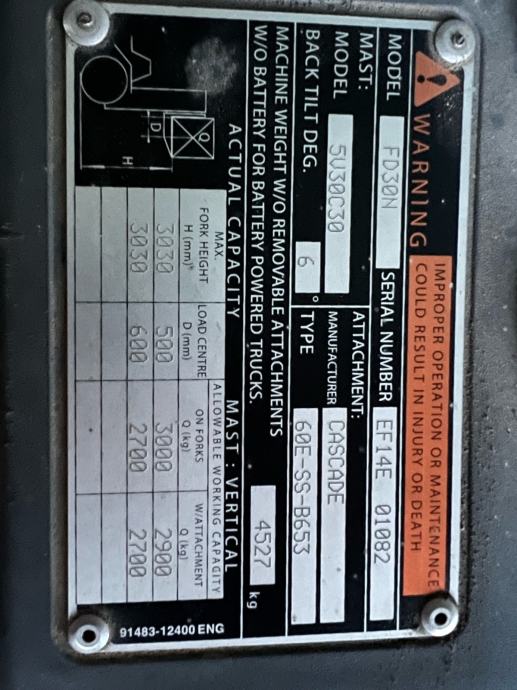 WARNING
IMPROPER OPERATION OR MAINTENANCE
COULD RESULT IN INJURY OR DEATH
MODEL FD30N SERIAL NUMBER EF14E 01082
MAST: ATTACHMENT:
MODEL 5V30C30 MANUFACTURER CASCADE
BACK TILT DEG. 6 ° TYPE 60E-SS-B653
MACHINE WEIGHT W/O REMOVABLE ATTACHMENTS
W/O BATTERY FOR BATTERY POWERED TRUCKS. 4527 kg
ACTUAL CAPACITY MAST : VERTICAL
MAX. FORK HEIGHT H (mm)* LOAD CENTRE D (mm) ALLOWABLE WORKING CAPACITY
ON FORKS Q (kg) W/ATTACHMENT Q (kg)
3030 500 3000 2900
3030 600 2700 2700
D
H
91483-12400 ENG